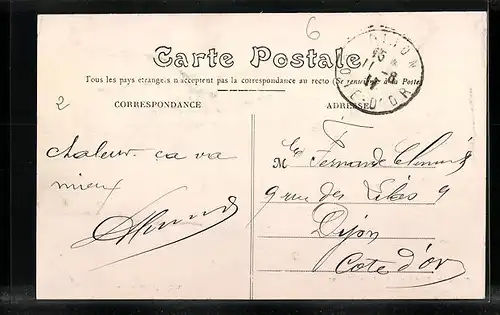 6
Carte Postale
Tous les pays étrangers n'acceptent pas la correspondance au recto (Se renseigner à la Poste)
DIJON
15
11-8
11
COTE-D'OR
2
CORRESPONDANCE
ADRESSE
chaleur. ça va
mieux
Mlle Fernande
9 rue des Lilas 9
Dijon
Cote d'or